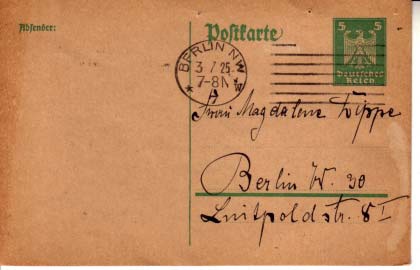 Absender:
Postkarte
5 5
Deutsches
Reich
BERLIN NW
3 7 25
7-8N
Frau Magdalene Lippe
Berlin W. 30
Luitpoldstr. 8 I